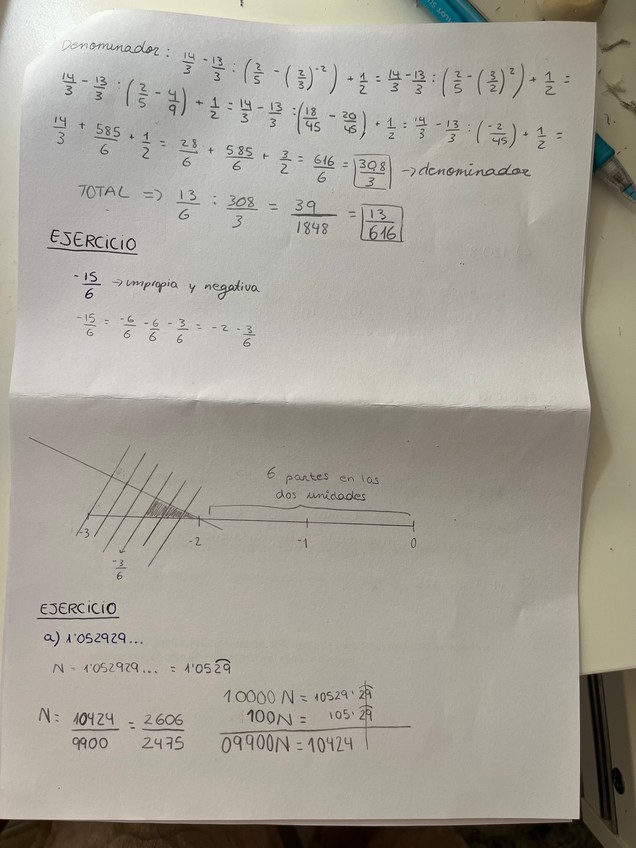 Denominador: 14/3 - 13/3 : (2/5 - (2/3)^-2) + 1/2 = 14/3 - 13/3 : (2/5 - (3/2)^2) + 1/2 =
14/3 - 13/3 : (2/5 - 4/9) + 1/2 = 14/3 - 13/3 : (18/45 - 20/45) + 1/2 = 14/3 - 13/3 : (-2/45) + 1/2 =
14/3 + 585/6 + 1/2 = 28/6 + 585/6 + 3/2 = 616/6 = 308/3 → denominador
TOTAL => 13/6 : 308/3 = 39/1848 = 13/616
EJERCICIO
-15/6 → impropia y negativa
-15/6 = -6/6 -6/6 -3/6 = -2 -3/6
6 partes en las
dos unidades
-3 -2 -1 0
-3/6
EJERCICIO
a) 1'052929...
N = 1'052929... = 1'0529
10000N = 10529'29
100N = 105'29
09900N = 10424
N = 10424/9900 = 2606/2475